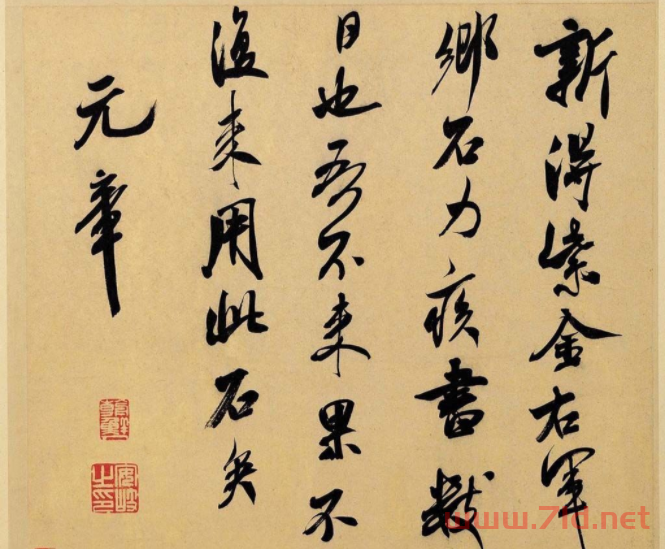 新得紫金右軍
鄉石力疾書數
日也吾不來果不
復來用此石矣
元章
安岐之印
www.71d.net